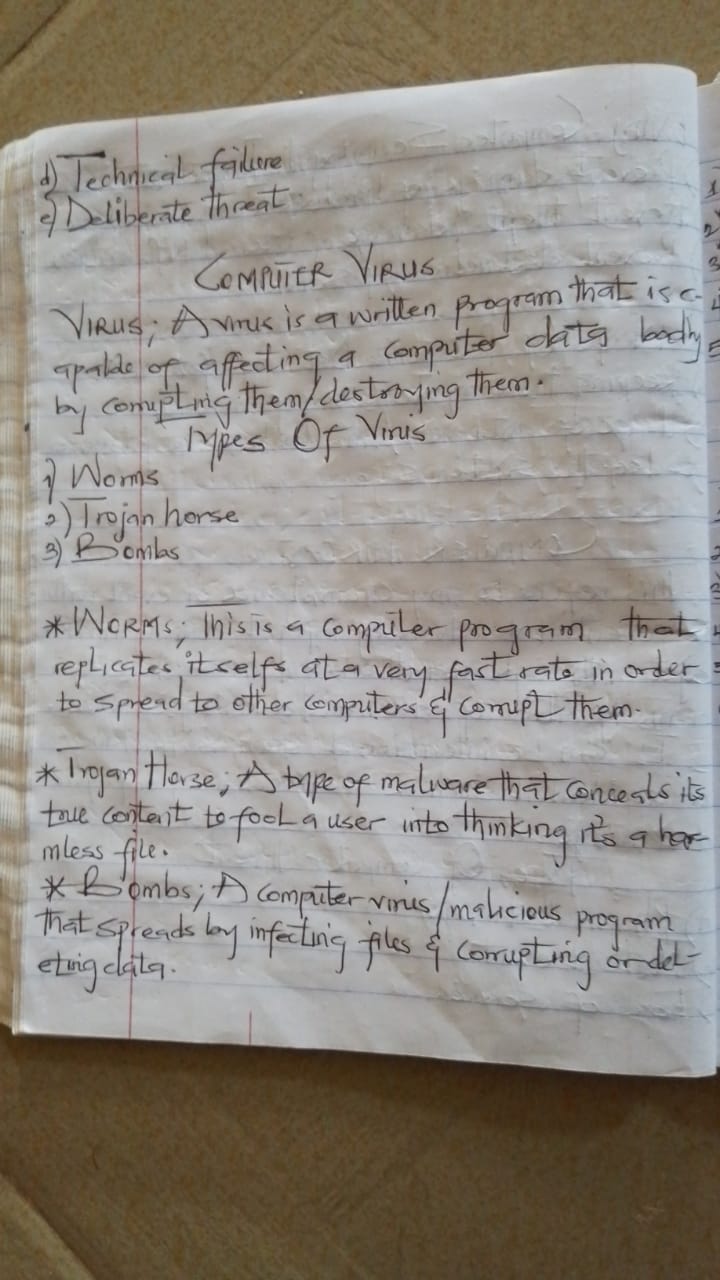 d) Technical failure
e) Deliberate threat
COMPUTER VIRUS
VIRUS; A virus is a written program that is c-
apable of affecting a computer data badly
by corrupting them/destroying them.
Types Of Virus
1) Worms
2) Trojan horse
3) Bombs
* WORMS; This is a computer program that
replicates itselfs at a very fast rate in order
to spread to other computers & corrupt them.
* Trojan Horse; A type of malware that conceals its
true content to fool a user into thinking it's a har-
mless file.
* Bombs; A computer virus/malicious program
that spreads by infecting files & corrupting or del-
eting data.